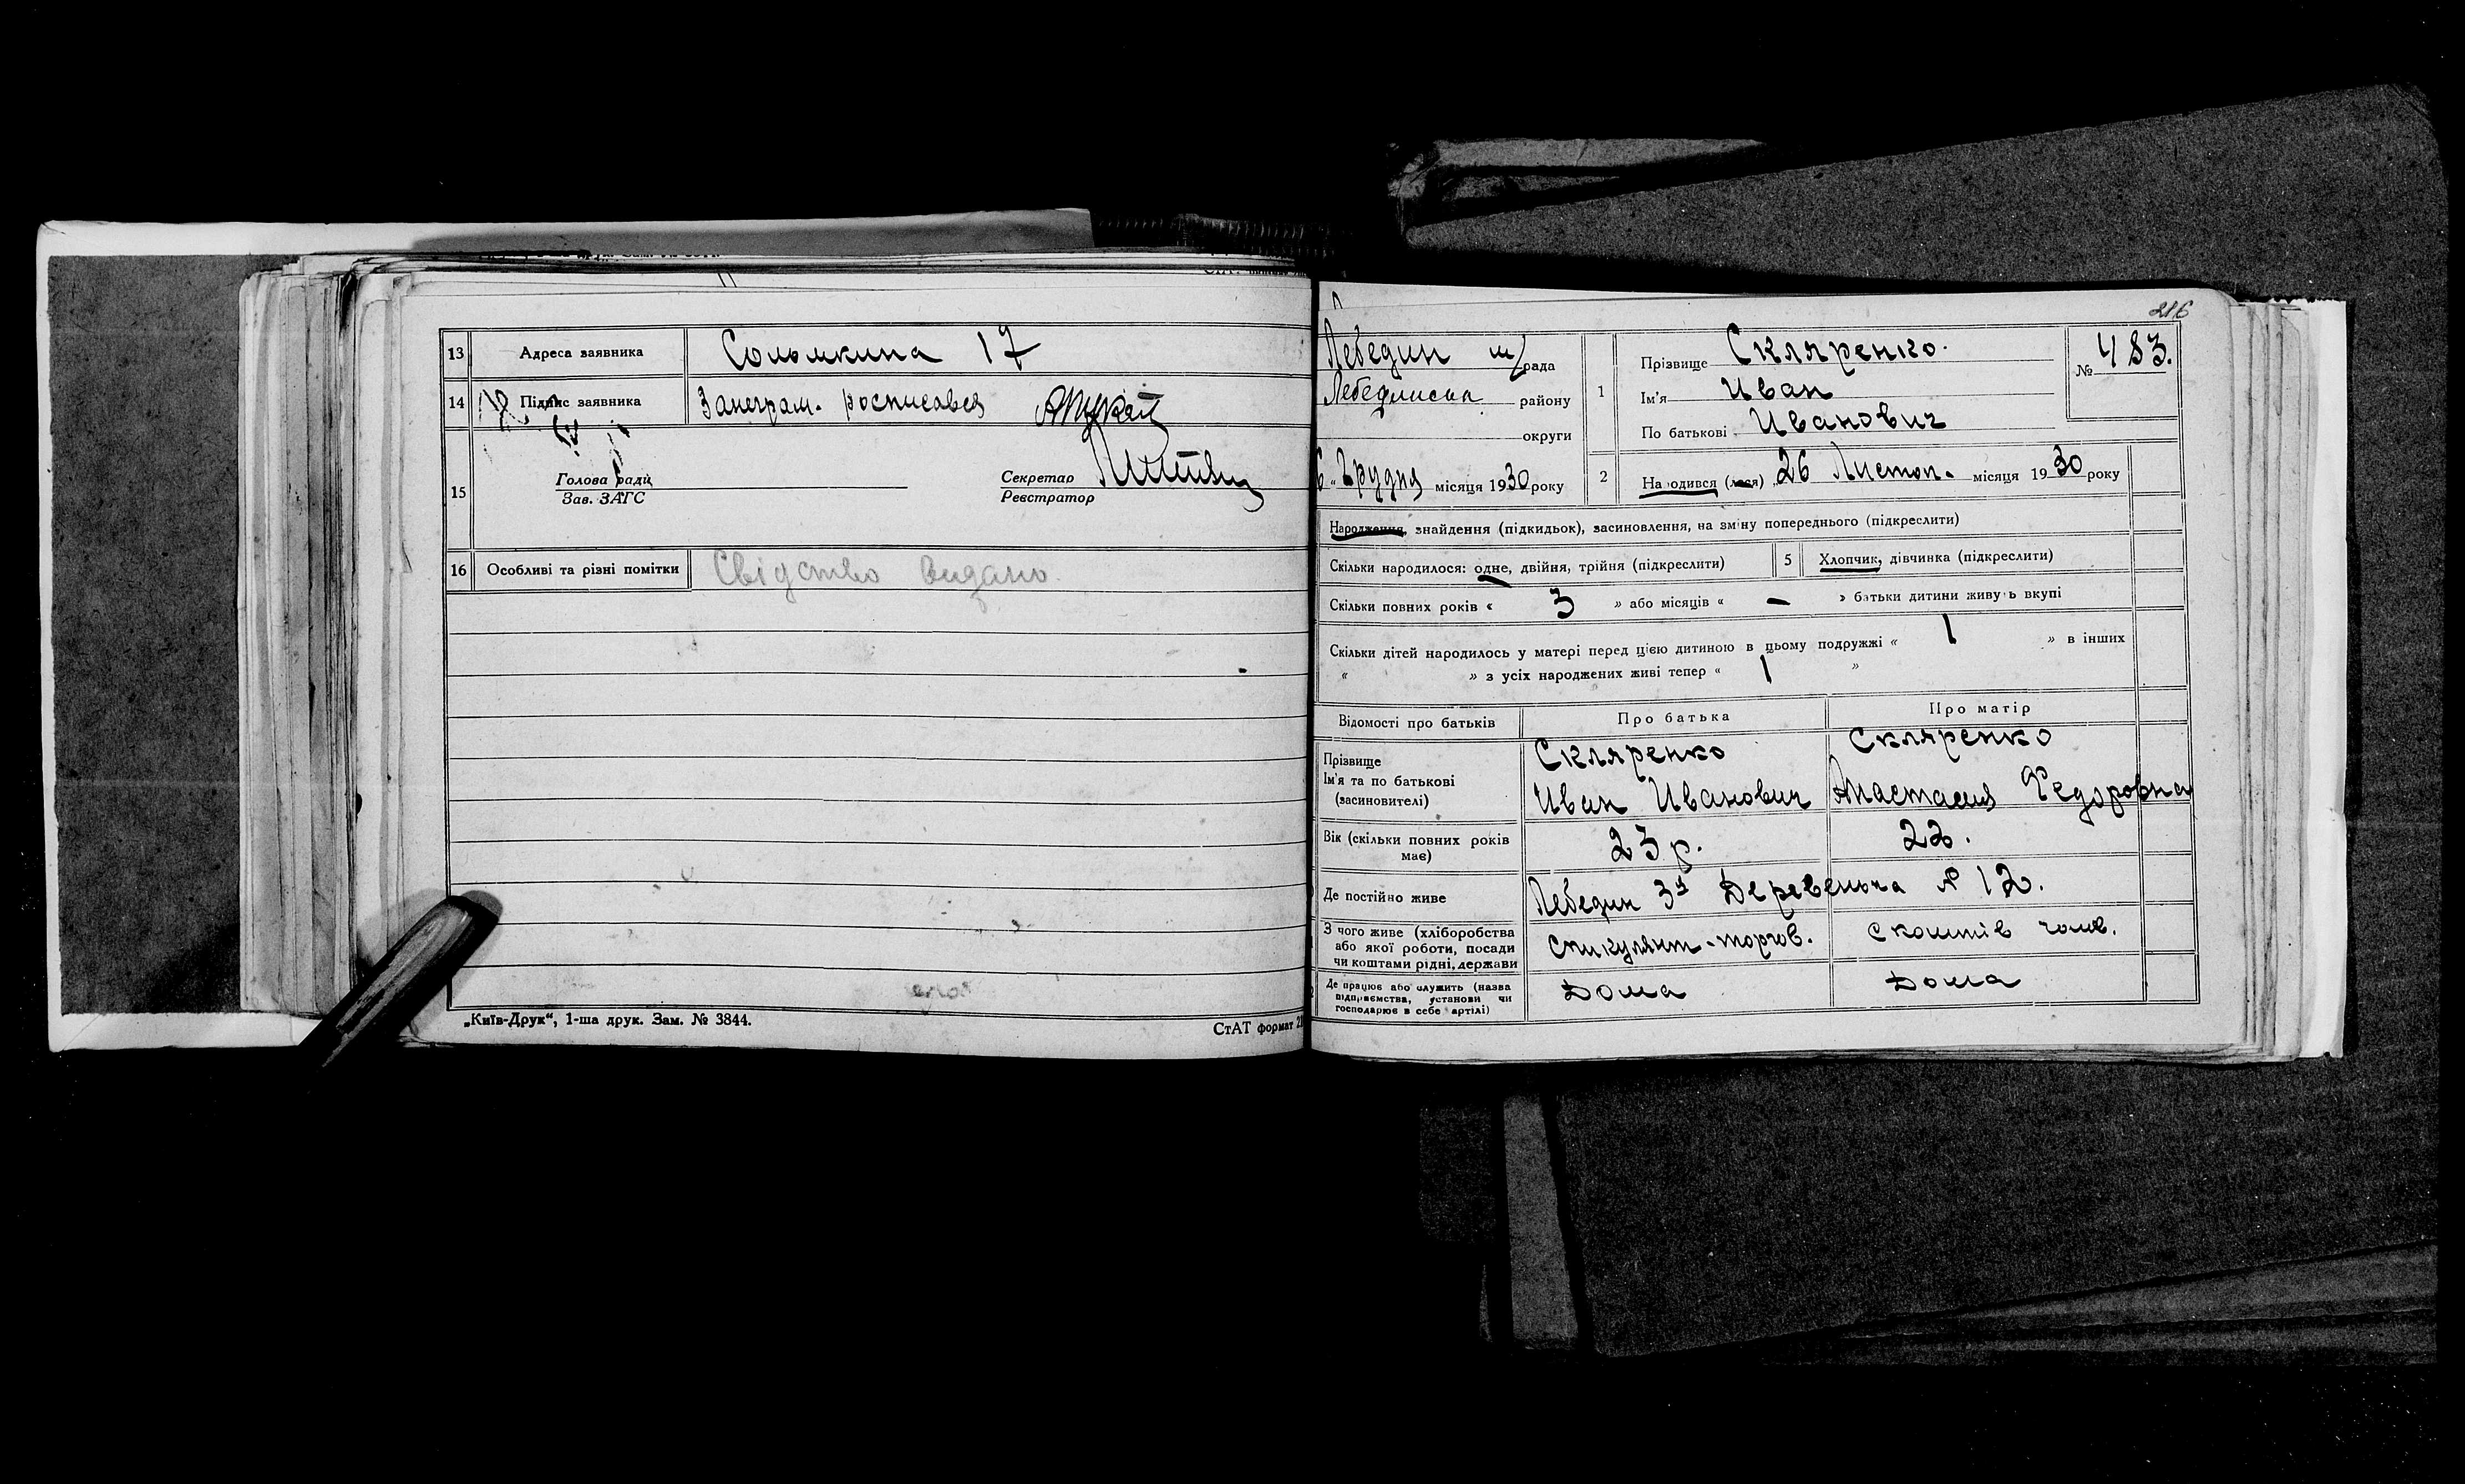 13 Адреса заявника Соломкина 17
14 Підпис заявника Занеграм. росписався
15 Голова ради Секретар
Зав. ЗАГС Реєстратор
16 Особливі та різні помітки Свідство видано.
„Київ-Друк“, 1-ша друк. Зам. № 3844.
СтАТ формат
216
Лебедин м/рада
Лебединськ району
округи
6 „ Грудня місяця 1930 року
1 Прізвище Скляренко.
Ім'я Иван
По батькові Иванович
№ 483.
2 Народився (лася) 26 Листоп. місяця 1930 року
Народження, знайдення (підкидьок), засиновлення, на зміну попереднього (підкреслити)
Скільки народилося: одне, двійня, трійня (підкреслити) 5 Хлопчик, дівчинка (підкреслити)
Скільки повних років « 3 » або місяців « — » батьки дитини живуть вкупі
Скільки дітей народилось у матері перед цією дитиною в цьому подружжі « 1 » в інших
« » з усіх народжених живі тепер « 1 »
Відомості про батьків Про батька Про матір
Прізвище Скляренко Скляренко
Ім'я та по батькові Иван Иванович Анастасия Федоровна
(засиновителі)
Вік (скільки повних років має) 23 р. 22.
Де постійно живе Лебедин 3я Деревенька № 12.
З чого живе (хліборобства
або якої роботи, посади
чи коштами рідні, держави
спикулянт-торгов. с коштів чолов.
Де працює або служить (назва
підприємства, установи чи
господарює в себе артілі)
Дома Дома